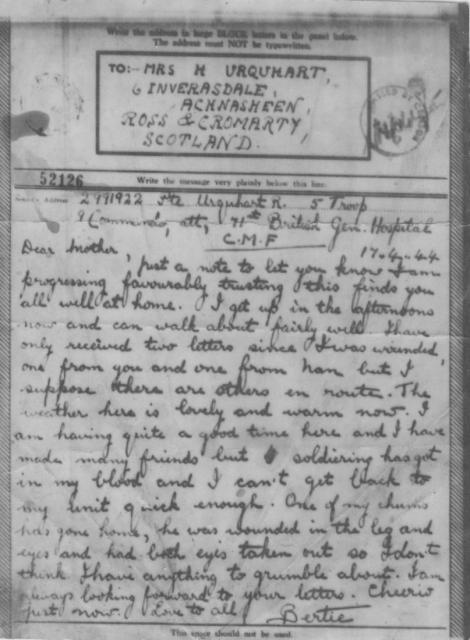 Write the address in large BLOCK letters in the panel below.
The address must NOT be typewritten.
TO:- MRS H URQUHART,
6 INVERASDALE,
ACHNASHEEN,
ROSS & CROMARTY,
SCOTLAND.
52126
Write the message very plainly below this line.
Address 2991922 Pte Urquhart R. 5 Troop
9 Commando, att, 71st British Gen. Hospital
C.M.F
17-4-44
Dear Mother,
Just a note to let you know I am
progressing favourably trusting this finds you
all well at home. I get up in the afternoons
now and can walk about fairly well. I have
only received two letters since I was wounded,
one from you and one from Nan but I
suppose there are others en route. The
weather here is lovely and warm now. I
am having quite a good time here and I have
made many friends but soldiering has got
in my blood and I can't get back to
my unit quick enough. One of my chums
has gone home, he was wounded in the leg and
eyes and had both eyes taken out so I don't
think I have anything to grumble about. I am
always looking forward to your letters. Cheerio
just now. Love to all Bertie
This space should not be used.